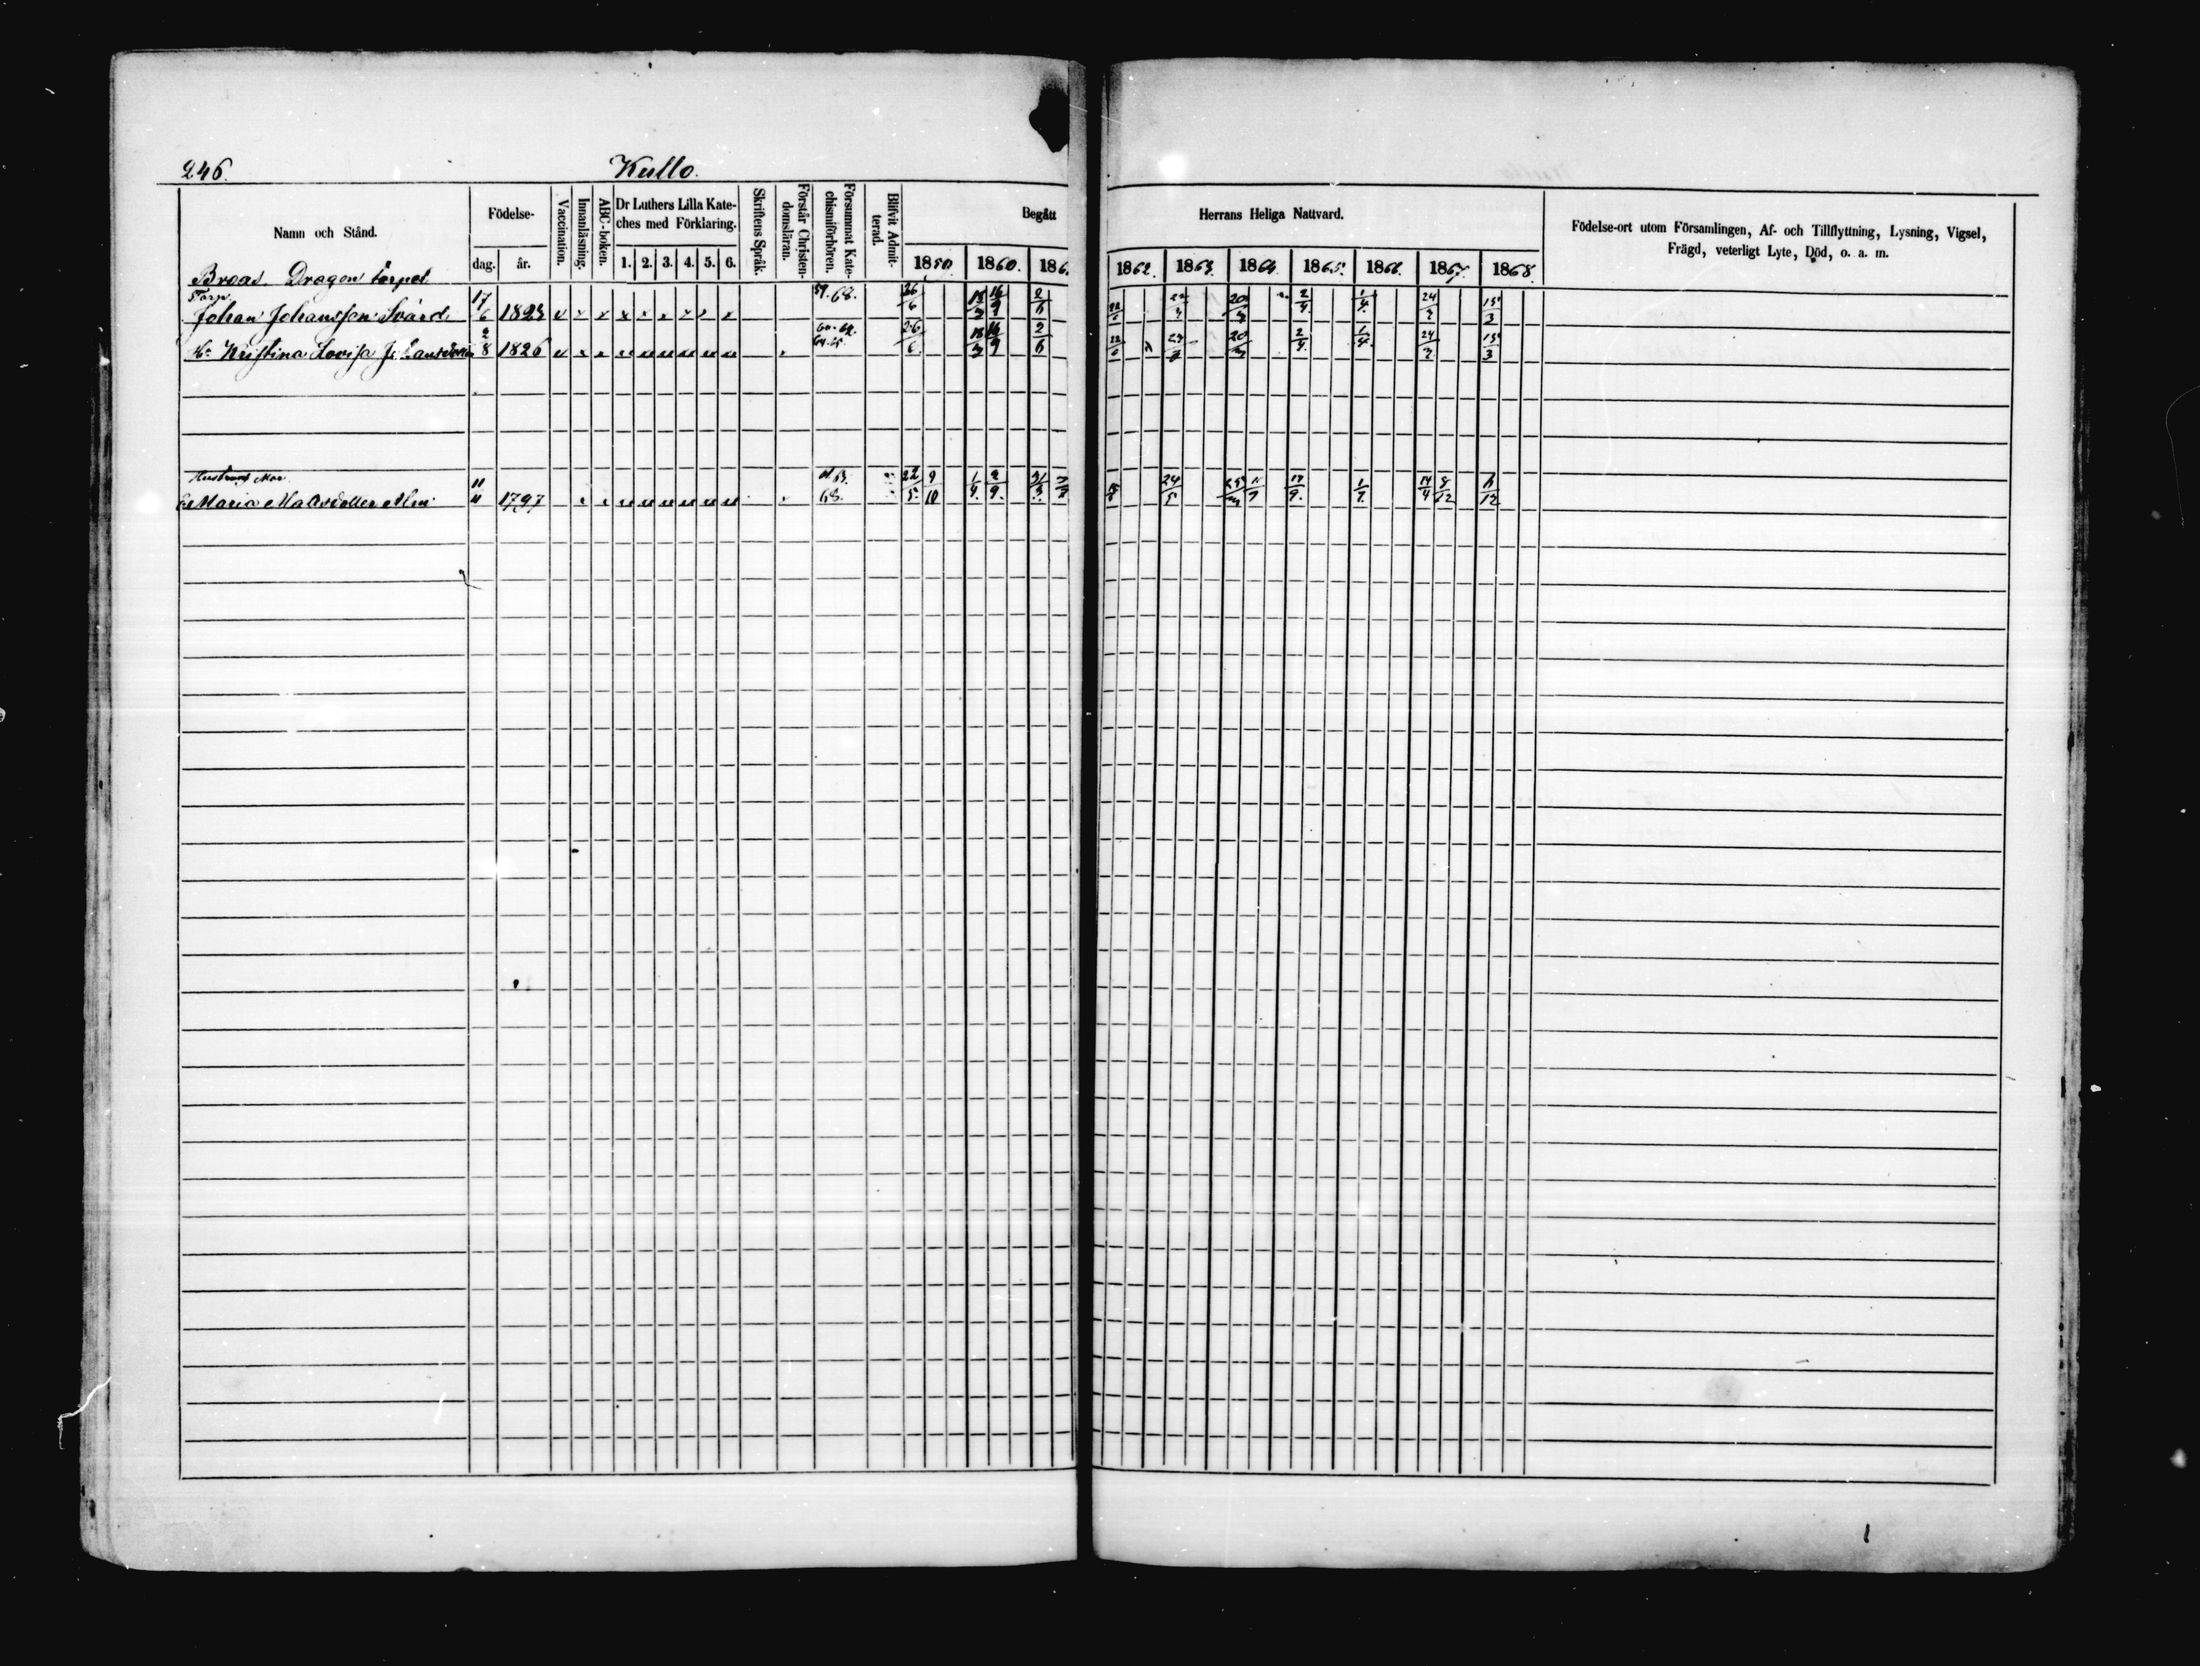 246.
Kullo.
Namn och Stånd.
Födelse-
dag. år.
Vaccination.
Innanläsning.
ABC-boken.
Dr Luthers Lilla Kate-
ches med Förklaring.
1. 2. 3. 4. 5. 6.
Skriftens Språk.
Förstår Christen-
domsläran.
Försummat Kate-
chismiförhören.
Blifvit Admit-
terad.
Begått
1859. 1860. 186
Herrans Heliga Nattvard.
1862. 1863. 1864. 1865. 1866. 1867. 1868.
Födelse-ort utom Församlingen, Af- och Tillflyttning, Lysning, Vigsel,
Frägd, veterligt Lyte, Död, o. a. m.
Broas Dragon torpet
Torp.
Johan Johansson Svärd 17/6 1823 59. 68. 26/6 18/3 16/9 2/6 22/3 20/3 2/4 1/4 24/3 15/3
Hu Kristina Lovisa Johansdotter 2/8 1826 26/6 18/3 16/9 2/6 22/3 20/3 2/4 1/4 24/3 15/3
Hustruns Mor
Maria Matsdotter Alm 11/11 1797 63. 68. 22/5 9/10 1/4 2/9 24/5 1/7 14/4 8/12 6/12